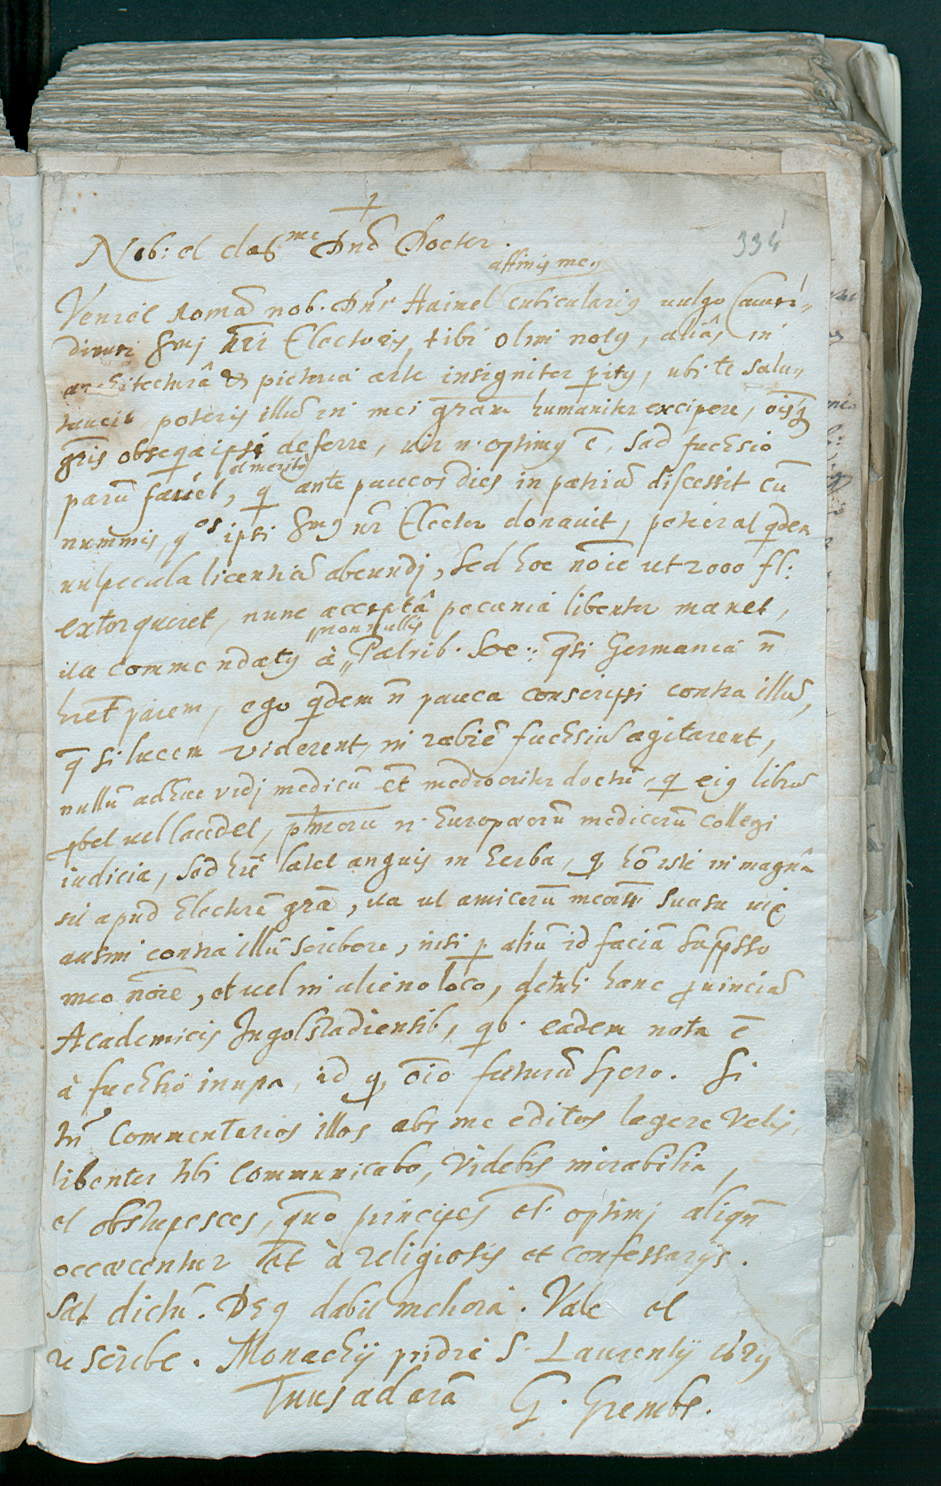 +
334
Nob: et claSme Dnē Doctor.
affinis meꝰ
Veniet Romā nob. Dn̄s Haimel cubicularius uulgo Camer¬
dimer Smj nr̄i Electoris, tibi olim notꝰ, aliâs in
architecturâ et pictoria arte insigniter peritꝰ, ubi te salu¬
tauerit poteris illū in mei gr̄am humaniter excipere,
obseqia ipsi deferre, uir n. optimꝰ ē, sed fuchsio
et merito
parū fauet, q ante paucos dies in patriā discessit cū
nummis, qos ipsi Smꝰ nr̄ Elector donauit, petierat qdem
uulpecula licentiā abeundj, sed hoc nōie ut 2000 fl:
extorqueret, nunc acceptâ pecuniâ libenter manet,
nonnullis
ita commendatꝰ à Patrib. Soc: qsi Germania n̄
hr̄et parem, ego qdem n̄ pauca conscripsi contra illū,
q si lucem viderent, in rabiē fuchsiū agitarent,
nullū adhuc vidj medicū et mediocriter doctū, q eiꝰ librū
pbet uel laudet, n. Europæorū medicorū collegi
iudicia, sed hic latet anguis in herba, q hō iste in magna
sit apud Electorē grā, ita ut amicorū meorū suasu uix
ausim contra illū scribere, nisi p aliū id faciā suppsso
meo nōie, et uel in alieno loco, detuli hanc prouinciā
Academicis Ingolstadiensib, qb. eadem nota ē
à fuchsio inusta, id q, oīo futurū spero. Si
tn̄ Commentarios illos abs me editos legere velis,
libenter tibi communicabo, videbis mirabilia,
et obstupesces, quo principes et optimj aliqn̄
occæcentur et à religiosis et confessarijs.
Sat dictū. Deꝰ dabit meliora. Vale et
rescribe. Monachij pridie S. Laurentij
Tuus ad arā G. Grembs.